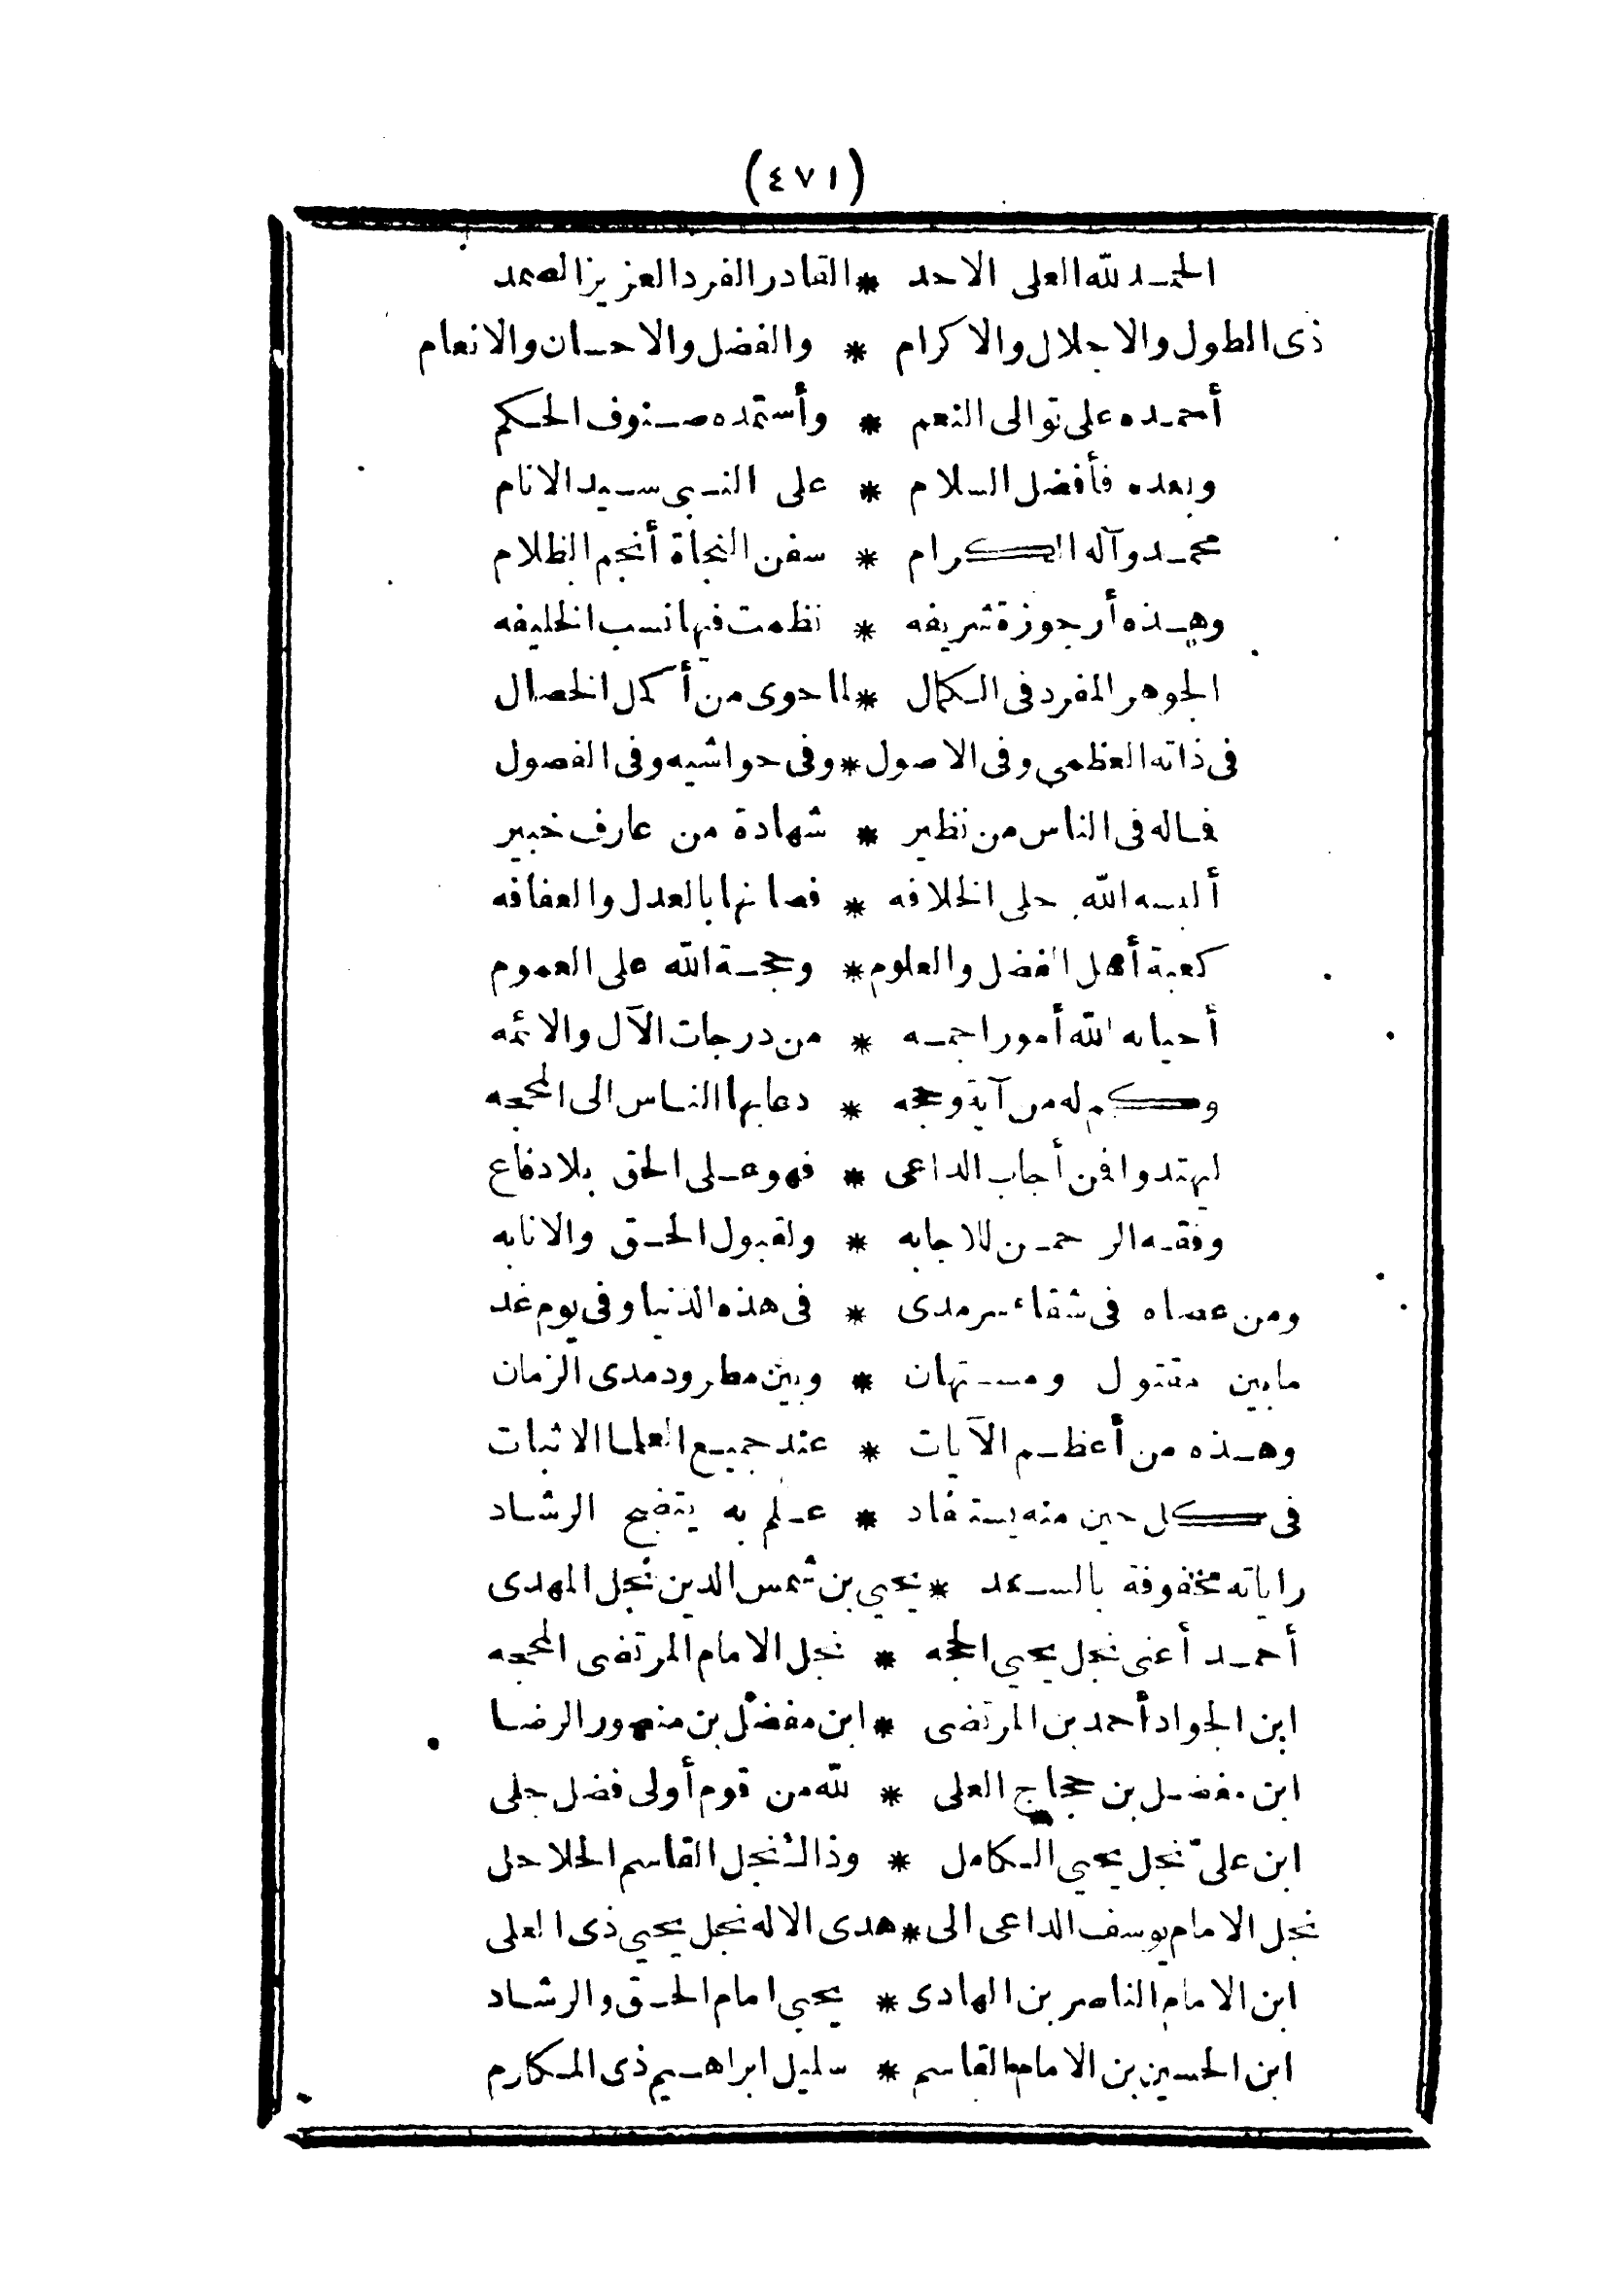 (٤٧١)
الحمد لله العلى الاحد * القادر الفرد العزيز الصمد
ذى الطول والاجلال والاكرام * والفضل والاحسان والانعام
أحمده على توالى النعم * وأستمده صنوف الحكم
وبعده فأفضل السلام * على النبى سيد الانام
محمد وآله الكرام * سفن النجاة أنجم الظلام
وهذه أرجوزة شريفه * نظمت فيها نسب الخليفه
الجوهر المفرد فى الكمال * لما حوى من أكمل الخصال
فى ذاته العظمى وفى الاصول * وفى حواشيه وفى الفصول
فماله فى الناس من نظير * شهادة من عارف خبير
ألبسه الله حلى الخلافه * فصانها بالعدل والعفافه
كعبة أهل الفضل والعلوم * وحجة الله على العموم
أحيا به الله أمورا جمه * من درجات الآل والائمه
وكم له من آية وحجه * دعا بها الناس الى المحجه
ليهتدوا فمن أجاب الداعى * فهو على الحق بلا دفاع
وفقه الرحمن للاجابه * ولقبول الحق والانابه
ومن عصاه فى شقاء سرمدى * فى هذه الدنيا وفى يوم غد
ما بين مقتول ومستهان * وبين مطرود مدى الزمان
وهذه من أعظم الآيات * عند جميع العلما الاثبات
فى كل حين منه يستفاد * علم به يتضح الرشاد
راياته محفوفة بالسعد * يحيى بن شمس الدين نجل المهدى
أحمد أعنى نجل يحيى الحجه * نجل الامام المرتضى المحجه
ابن الجواد أحمد بن المرتضى * ابن مفضل بن منصور الرضا
ابن مفضل بن حجاج العلى * لله من قوم أولى فضل جلى
ابن على نجل يحيى الكامل * وذاك نجل القاسم الحلاحل
نجل الامام يوسف الداعى الى * هدى الاله نجل يحيى ذى العلى
ابن الامام الناصر بن الهادى * يحيى امام الحق والرشاد
ابن الحسين بن الامام القاسم * سليل ابراهيم ذى المكارم